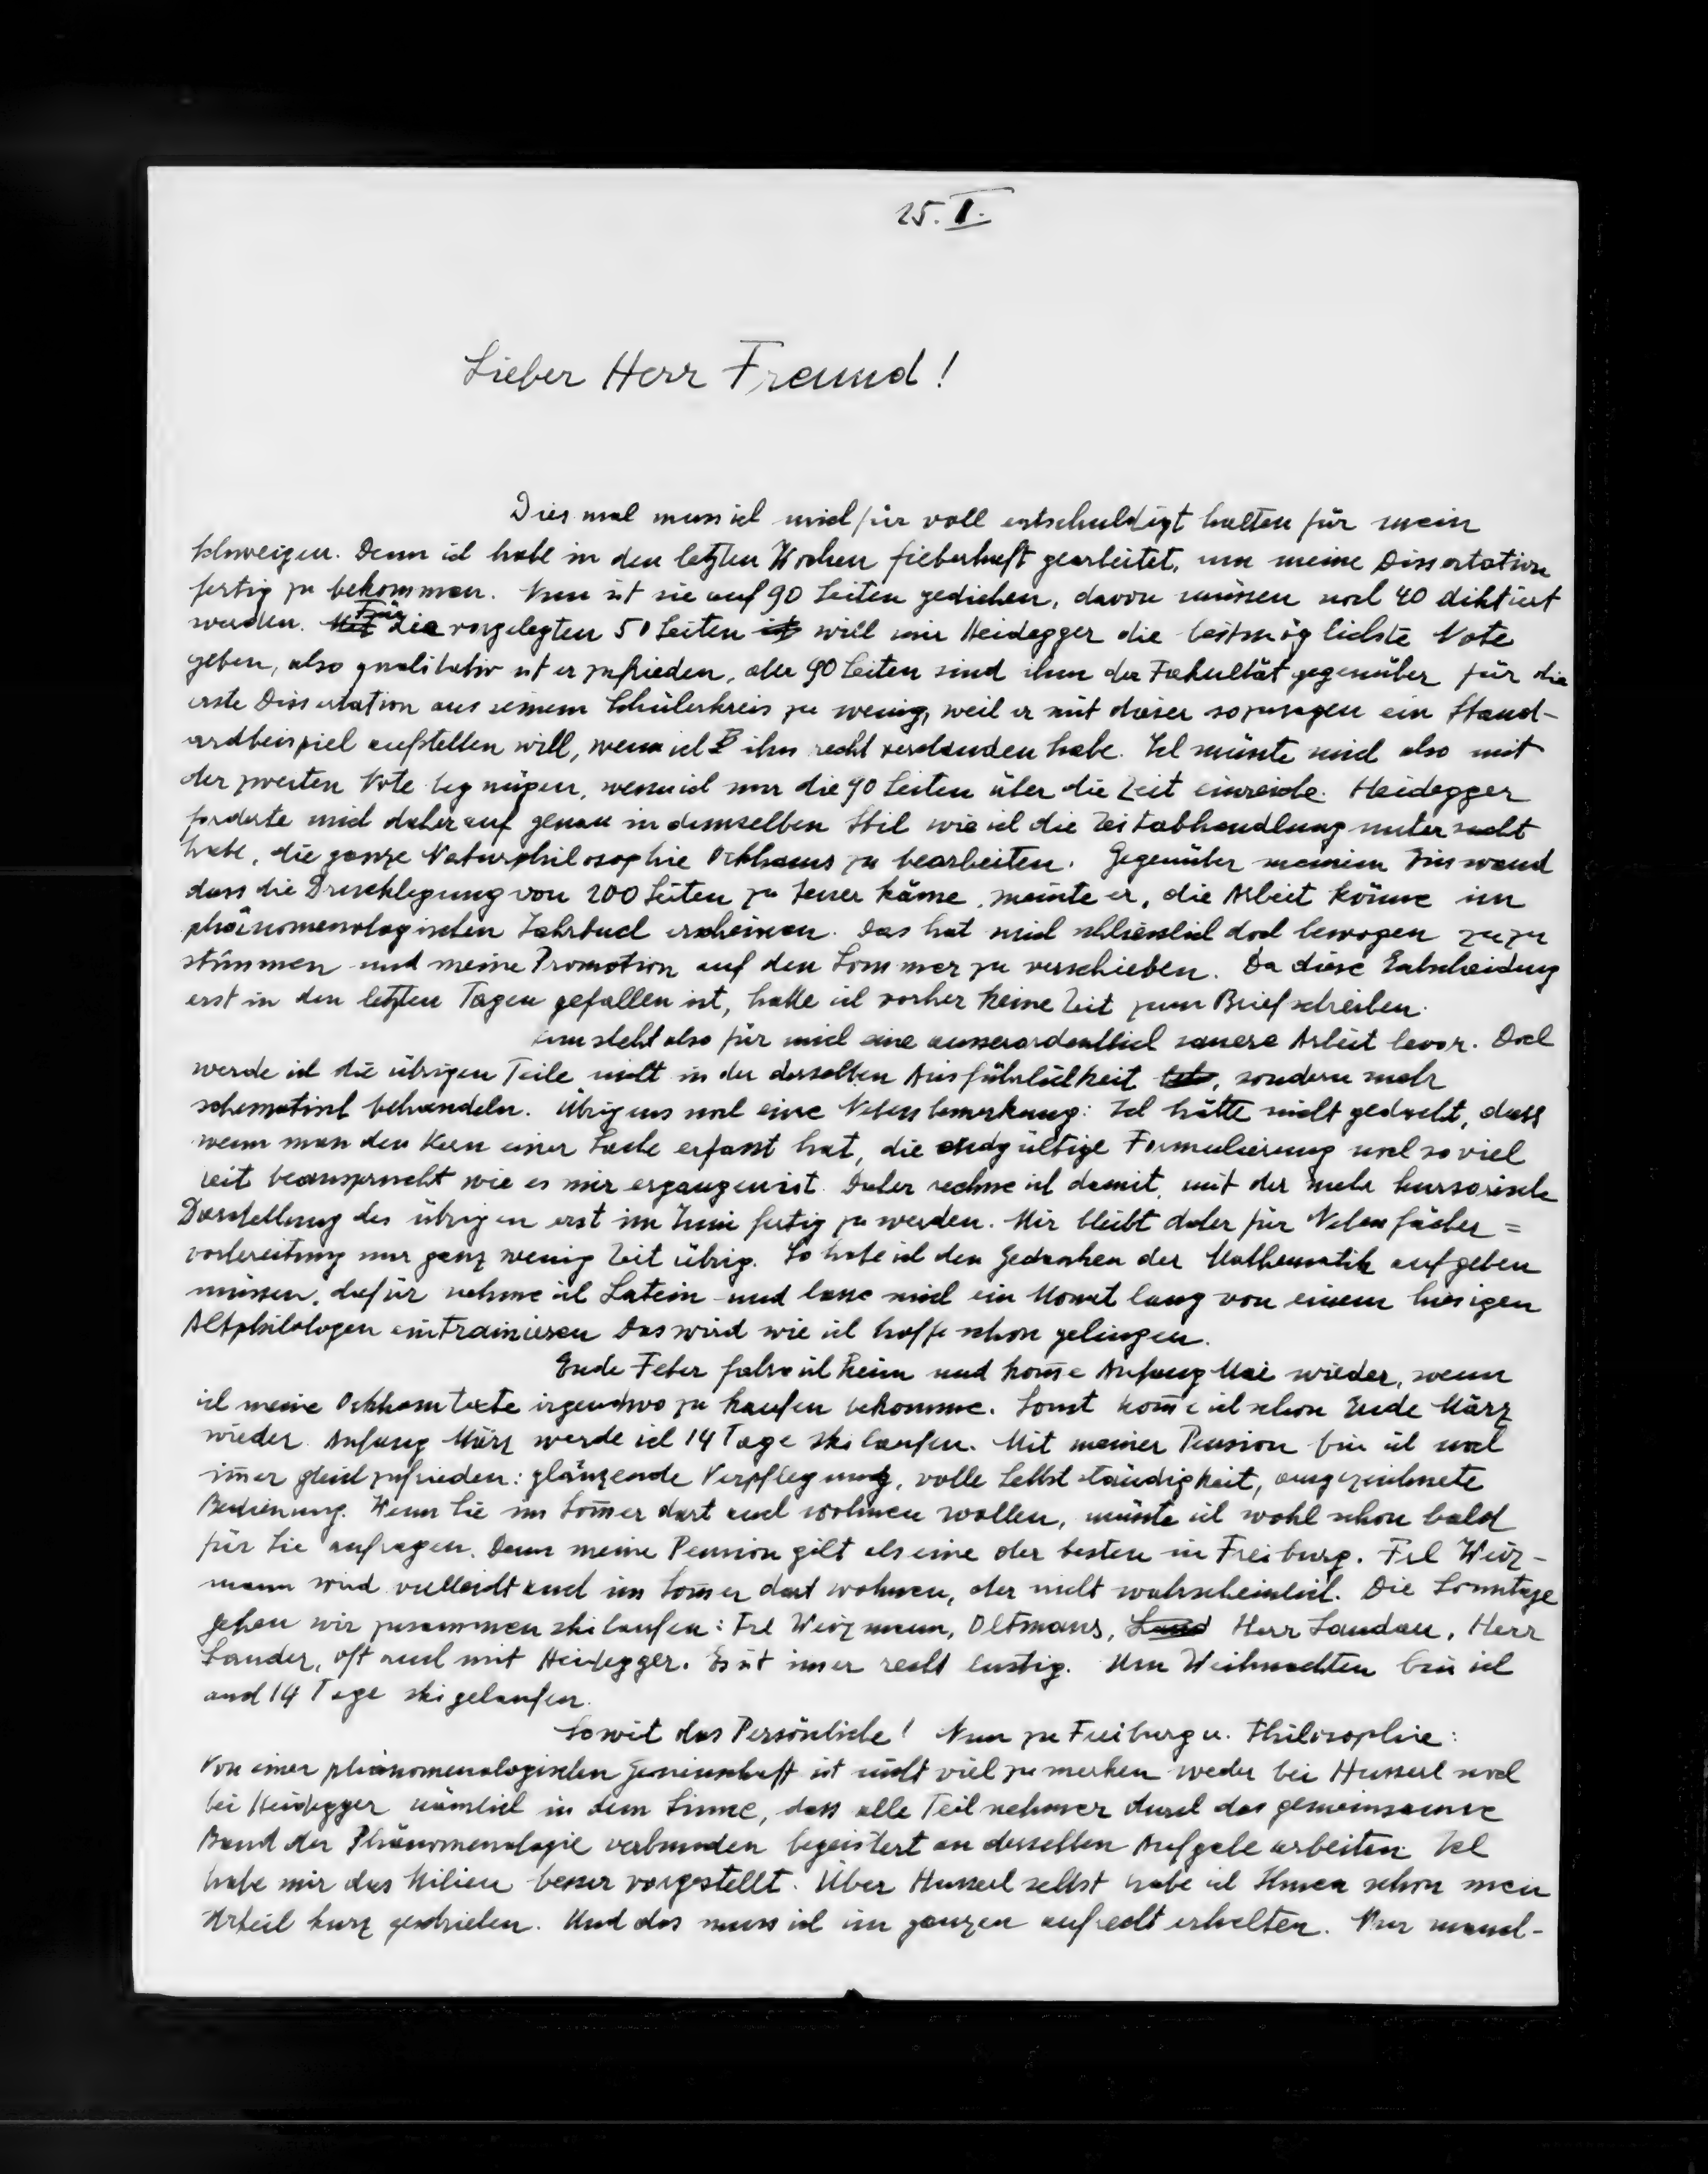 25. I.
Lieber Herr Freund!
Dies mal muss ich mich für voll entschuldigt halten für mein
Schweigen. Denn ich habe in den letzten Wochen fieberhaft gearbeitet, um meine Dissertation
fertig zu bekommen. Nun ist sie auf 90 Seiten gediehen, davon müssen noch 40 diktiert
werden. Für die vorgelegten 50 Seiten will mir Heidegger die bestmöglichste Note
geben, also qualitativ ist er zufrieden, aber 90 Seiten sind ihm der Fakultät gegenüber für die
erste Dissertation aus seinem Schülerkreis zu wenig, weil er mit dieser sozusagen ein Stand-
ardbeispiel aufstellen will, wenn ich ihn recht verstanden habe. Ich müsste mich also mit
der zweiten Note begnügen, wenn ich nur die 90 Seiten über die Zeit einreiche. Heidegger
forderte mich daher auf genau in demselben Stil wie ich die Zeitabhandlung untersucht
habe, die ganze Naturphilosophie Ockhams zu bearbeiten. Gegenüber meinem Einwand
dass die Drucklegung von 200 Seiten zu teuer käme, meinte er, die Arbeit könne im
phänomenologischen Jahrbuch erscheinen. Das hat mich schliesslich doch bewogen zuzu
stimmen und meine Promotion auf den Sommer zu verschieben. Da diese Entscheidung
erst in den letzten Tagen gefallen ist, hatte ich vorher keine Zeit zum Briefschreiben.
Nun steht also für mich eine ausserordentlich sauere Arbeit bevor. Doch
werde ich die übrigen Teile nicht in der derselben Ausführlichkeit, sondern mehr
schematisch behandeln. Übrigens noch eine Nebenbemerkung: Ich hätte nicht gedacht, dass
wenn man den Kern einer Sache erfasst hat, die endgültige Formulierung noch so viel
Zeit beansprucht wie es mir ergangen ist. Daher rechne ich damit, mit der mehr kursorische
Darstellung des übrigen erst im Juni fertig zu werden. Mir bleibt daher für Nebenfächer=
vorbereitung nur ganz wenig Zeit übrig. So habe ich den Gedanken der Mathematik aufgeben
müssen, dafür nehme ich Latein und lasse mich ein Monat lang von einem hiesigen
Altphilologen eintrainieren Das wird wie ich hoffe schon gelingen.
Ende Feber fahre ich heim und kom̄e Anfang Mai wieder, wenn
ich meine Ockhamtexte irgendwo zu kaufen bekomme. Sonst kom̄e ich schon Ende März
wieder. Anfang März werde ich 14 Tage skilaufen. Mit meiner Pension bin ich noch
im̄er gleich zufrieden: glänzende Verpflegung, volle Selbstständigkeit, ausgezeichnete
Bedienung. Wenn Sie im Som̄er dort auch wohnen wollen, müsste ich wohl schon bald
für Sie anfragen. Denn meine Pension gilt als eine der besten in Freiburg. Frl Weiz-
mann wird vielleicht auch im Som̄er dort wohnen, aber nicht wahrscheinlich. Die Sonntage
gehen wir zusammen skilaufen: Frl Weizmann, Oltmans, Herr Landau, Herr
Sander, oft auch mit Heidegger. Es ist im̄er recht lustig. Um Weihnachten bin ich
auch 14 Tage skigelaufen.
Soweit das Persönliche! Nun zu Freiburg u. Philosophie:
Von einer phänomenologischen Gemeinschaft ist nicht viel zu merken weder bei Husserl noch
bei Heidegger nämlich in dem Sinne, dass alle Teilnehmer durch das gemeinsame
Band der Phänomenologie verbunden begeistert an derselben Aufgabe arbeiten. Ich
habe mir das Milieu besser vorgestellt. Über Husserl selbst habe ich Ihnen schon mein
Urteil kurz geschrieben. Und das muss ich im ganzen aufrecht erhalten. Nur manch-